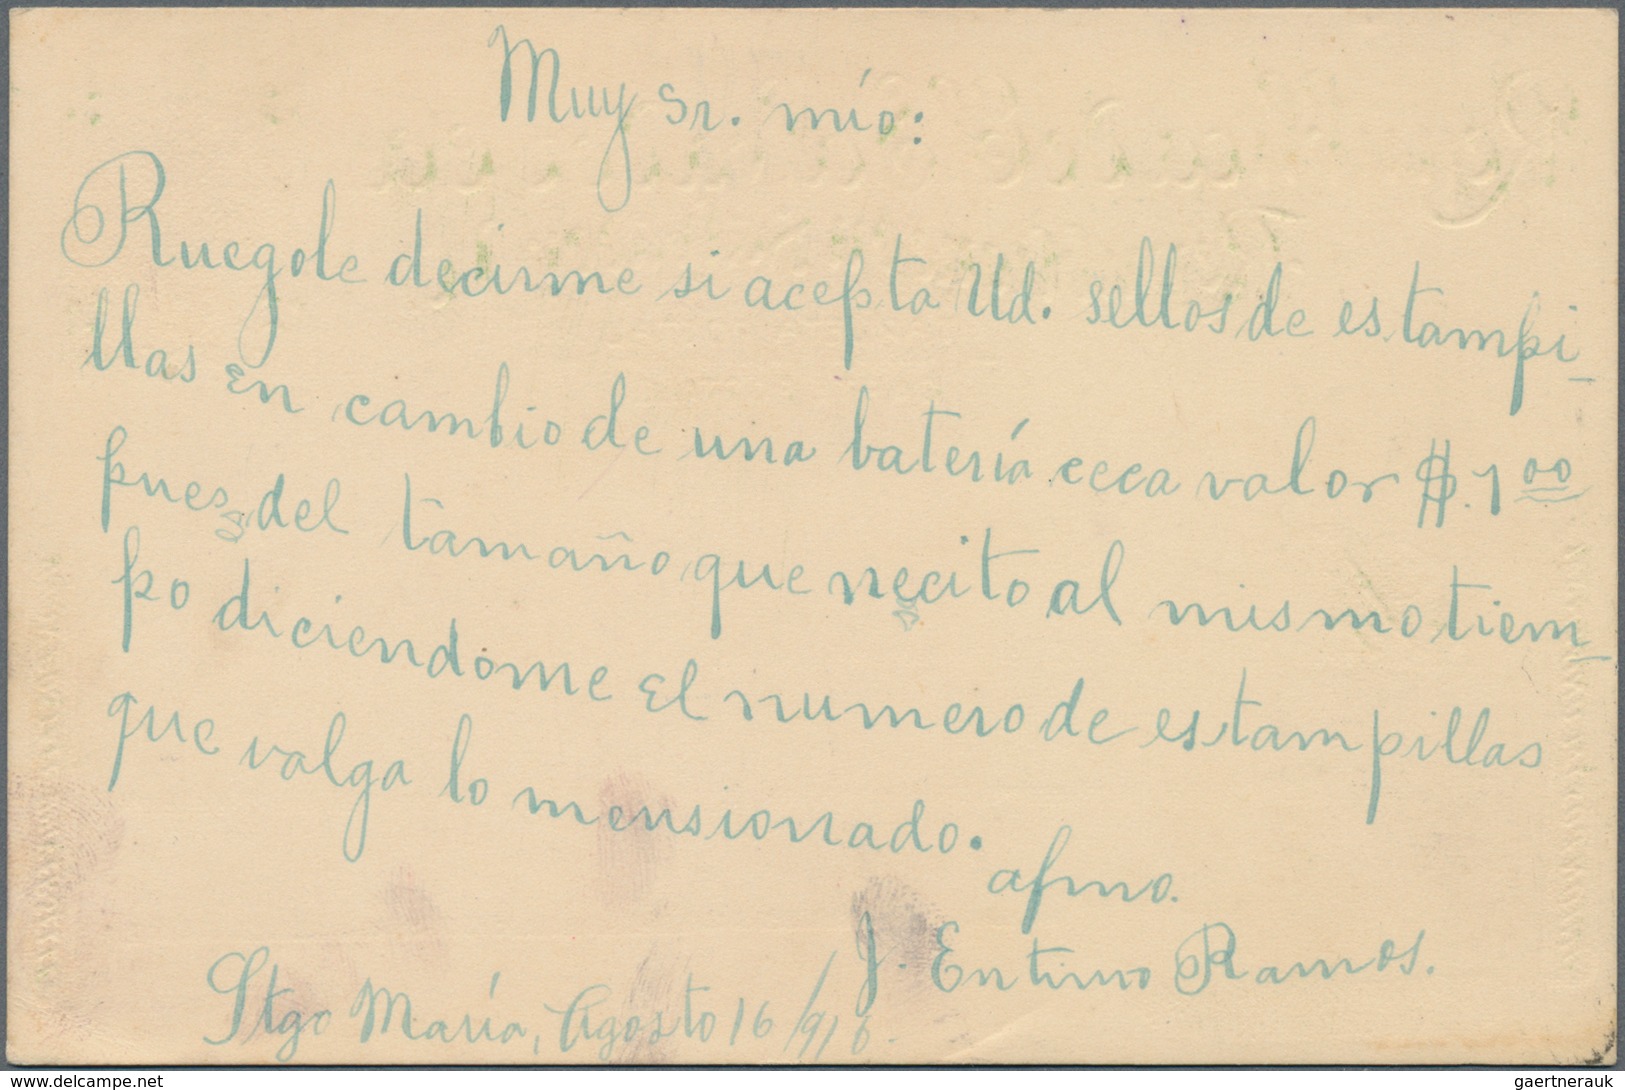 Muy Sr. mío:
Ruegole decirme si acepta Ud. sellos de estampi-
llas en cambio de una batería ceca valor $.1 00
pues del tamaño que necito al mismo tiem-
po diciendome el numero de estampillas
que valga lo mensionado.
afmo.
J. Ramos.
Stgo María, Agosto 16/916.
www.delcampe.net
gaertnerauk